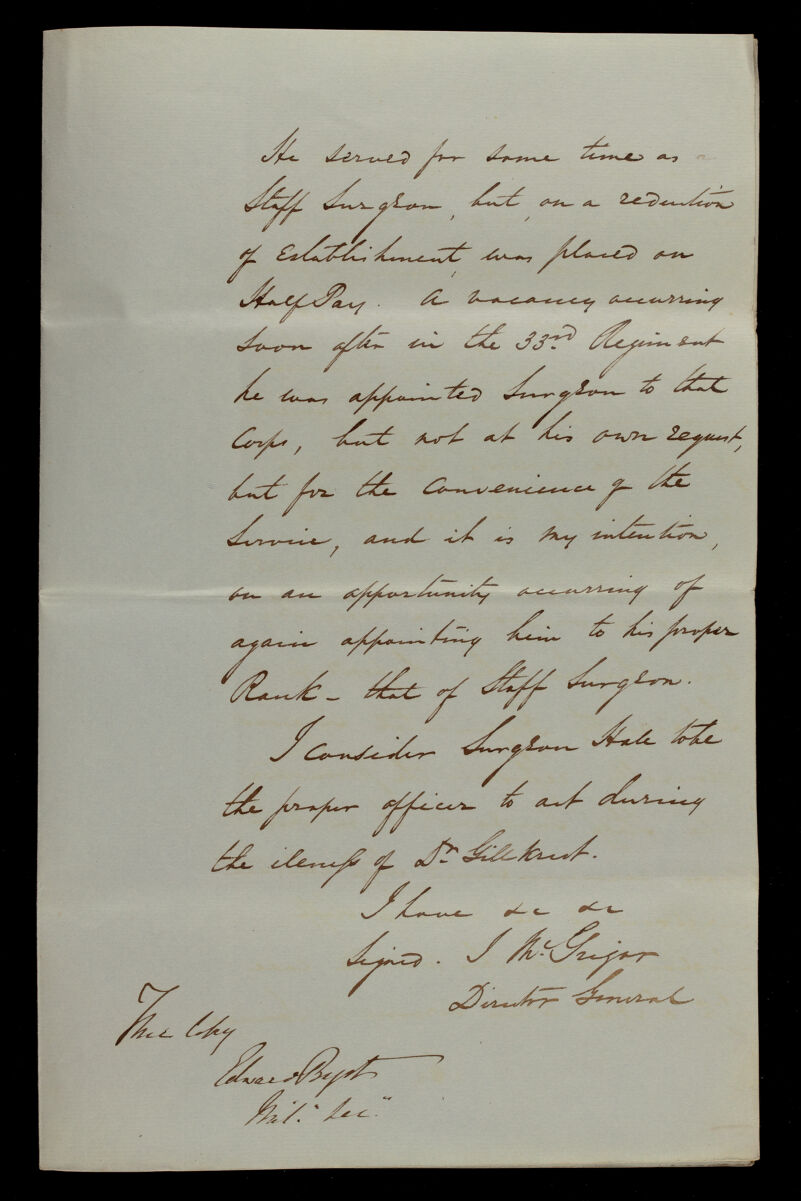 He served for some time as a
Staff Surgeon, but, on a reduction
of Establishment, was placed on
Half Pay. A vacancy occurring
soon after in the 33rd Regiment
he was appointed Surgeon to that
Corps, but not at his own request,
but for the convenience of the
Service, and it is my intention,
on an opportunity occurring of
again appointing him to his proper
Rank - that of Staff Surgeon.
I consider Surgeon Hale to be
the proper officer to act during
the ilness of Dr. Gillkrest.
I have &c &c
Signed. J McGrigor
Director General
True Copy
Edward
Mily. Secy.